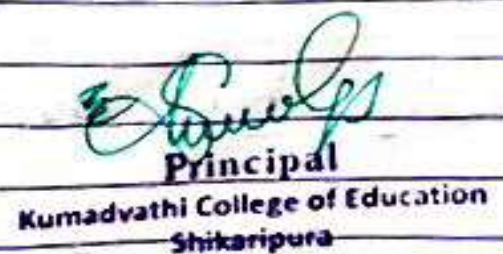 Principal
Kumadvathi College of Education
Shikaripura